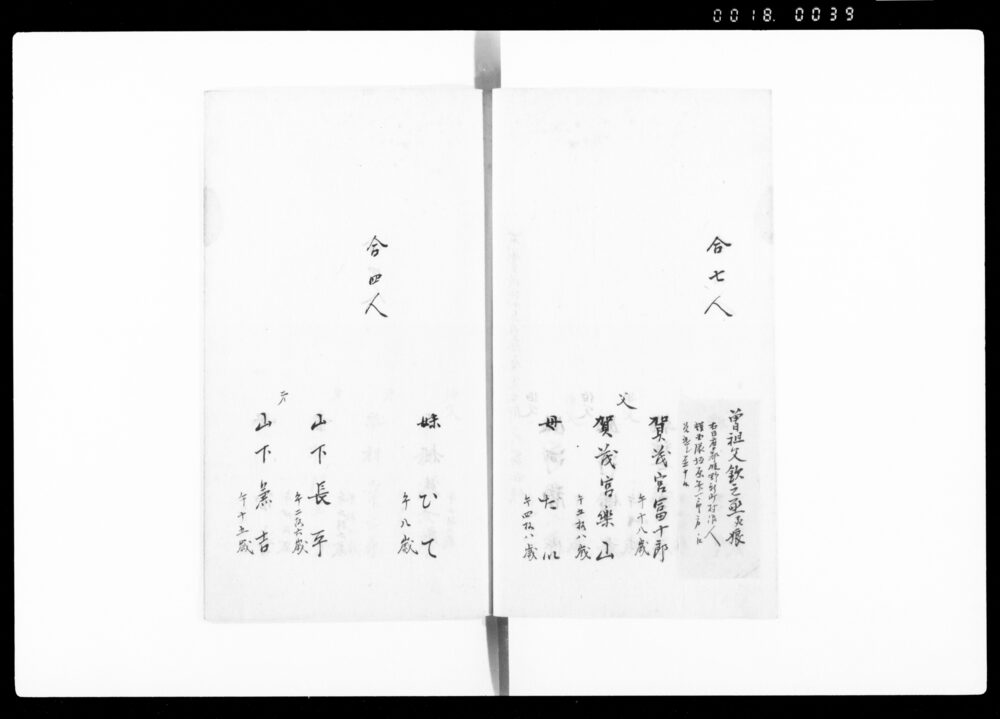 0018. 0039
合七人
曽祖父欽之丞夫娘
賀茂宮富十郎
午十八歳
父
賀茂宮樂山
午五拾八歳
母
午四拾八歳
妹ひて
午八歳
合四人
山下長平
午二拾六歳
山下兼吉
午十五歳